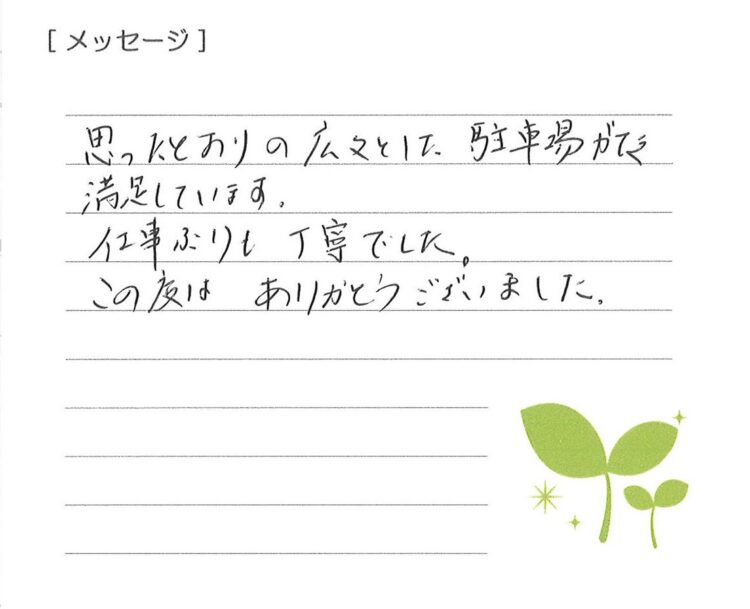 [ メッセージ ]
思ったとおりの広々とした駐車場ができ
満足しています。
仕事ぶりも 丁寧でした。
この度は ありがとうございました。